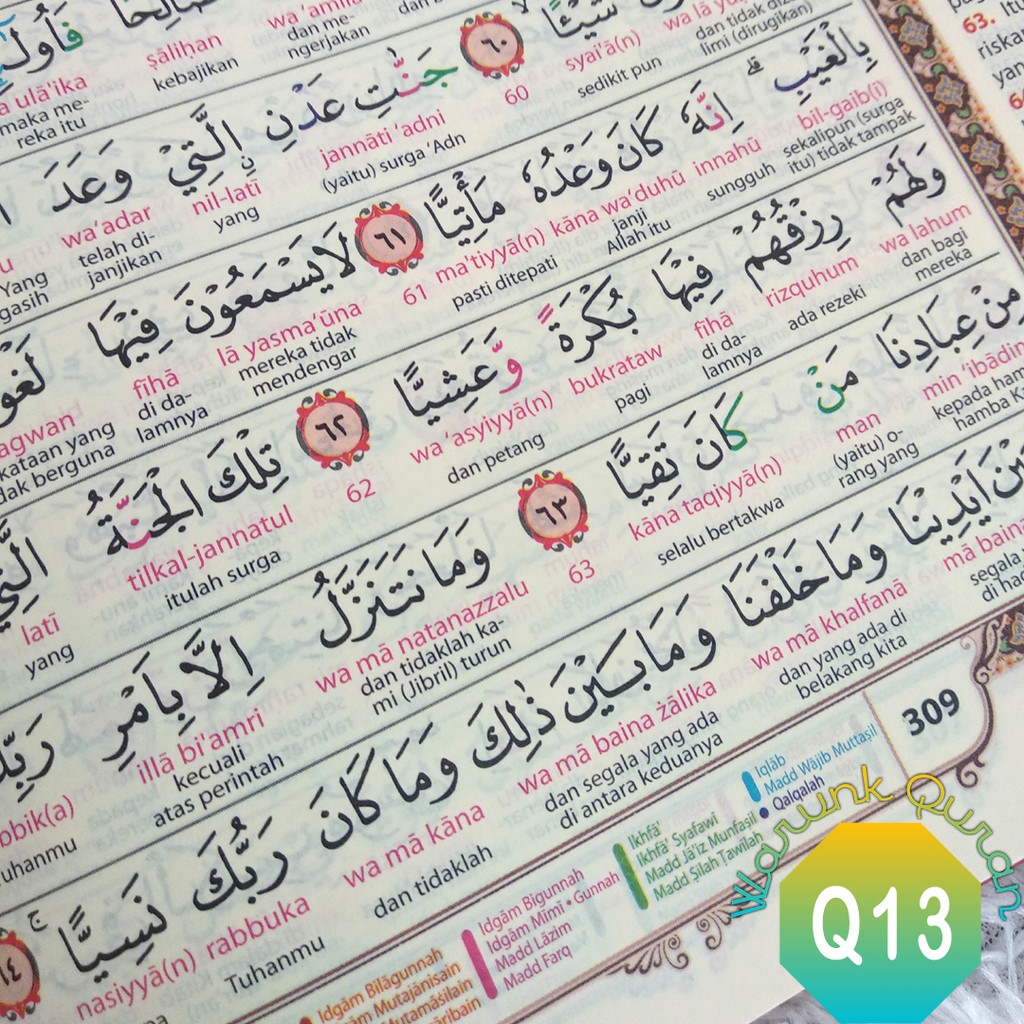 صَالِحًا فَاُولٰۤىِٕكَ
wa 'amila ṣāliḥan a ulā'ika
dan me- kebajikan maka me-
ngerjakan reka itu
شَيْـًٔا ۙ ٦٠ جَنّٰتِ عَدْنِ ۨالَّتِيْ وَعَدَ
wa lā syai'ā(n) 60 jannāti 'adni nil-latī wa'adar
dan tidak sedikit pun (yaitu) surga 'Adn yang telah di- Yang
limi (dirugikan) janjikan gasih
بِالْغَيْبِۗ اِنَّهٗ كَانَ وَعْدُهٗ مَأْتِيًّا ٦١ لَا يَسْمَعُوْنَ فِيْهَا لَغْوًا
bil-gaib(i) innahū kāna wa'duhū ma'tiyyā(n) 61 lā yasma'ūna fīhā agwan
sekalipun (surga sungguh janji pasti ditepati mereka tidak di da- kataan yang
itu) tidak tampak Allah itu mendengar lamnya dak berguna
وَلَهُمْ رِزْقُهُمْ فِيْهَا بُكْرَةً وَّعَشِيًّا ٦٢ تِلْكَ الْجَنَّةُ الَّتِيْ
wa lahum rizquhum fīhā bukrataw wa 'asyiyyā(n) 62 tilkal-jannatul latī
dan bagi ada rezeki di da- pagi dan petang itulah surga yang
mereka lamnya
مِنْ عِبَادِنَا مَنْ كَانَ تَقِيًّا ٦٣ وَمَا نَتَنَزَّلُ اِلَّا بِاَمْرِ رَبِّكَ
min 'ibādin man kāna taqiyyā(n) 63 wa mā natanazzalu illā bi'amri obik(a)
kepada ham (yaitu) o- selalu bertakwa dan tidaklah ka- kecuali uhanmu
hamba K rang yang mi (Jibril) turun atas perintah
بَيْنَ اَيْدِيْنَا وَمَا خَلْفَنَا وَمَا بَيْنَ ذٰلِكَ وَمَا كَانَ رَبُّكَ نَسِيًّا ۚ
mā baina wa mā khalfanā wa mā baina żālika wa mā kāna nasiyyā(n) rabbuka
segala dan yang ada di dan segala yang ada dan tidaklah Tuhanmu
di had belakang kita di antara keduanya
63. Itu
riska
yang
309
Iqlāb
Madd Wājib Muttaṣil
Qalqalah
Ikhfā'
Ikhfā' Syafawī
Madd Jā'iz Munfaṣil
Madd Ṣilah Ṭawīlah
Idgām Bigunnah
Idgām Mīmī • Gunnah
Madd Lāzim
Madd Farq
Idgām Bilāgunnah
ām Mutajānisain
Mutamāṡilain
āribain
Warunk Quran
Q13